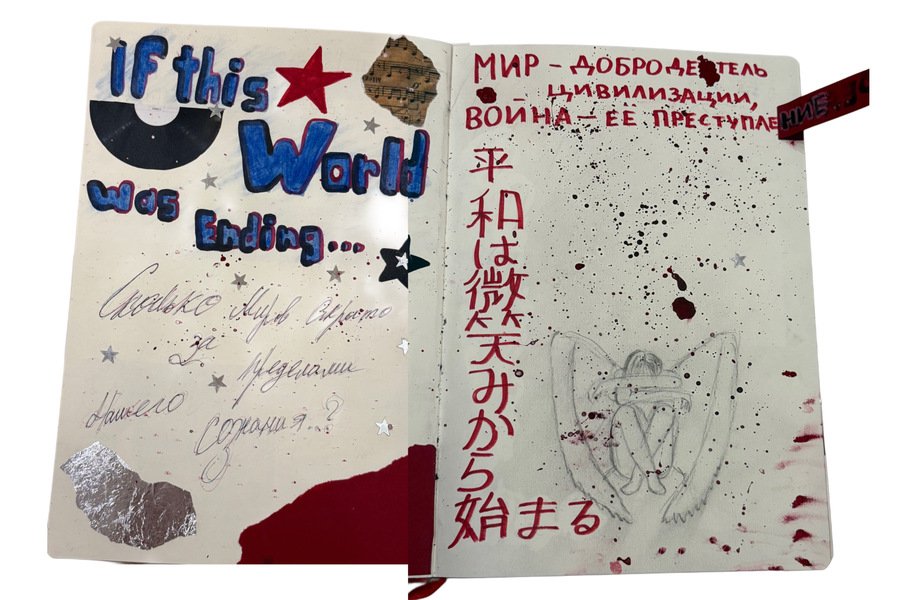 If this
World
Was
Ending...
Сколько Миров скрыто
за
пределами
Нашего
сознания...?
МИР – ДОБРОДЕТЕЛЬ
ЦИВИЛИЗАЦИИ,
ВОЙНА – ЕЕ ПРЕСТУПЛЕНИЕ...
平和は微笑みから
始まる